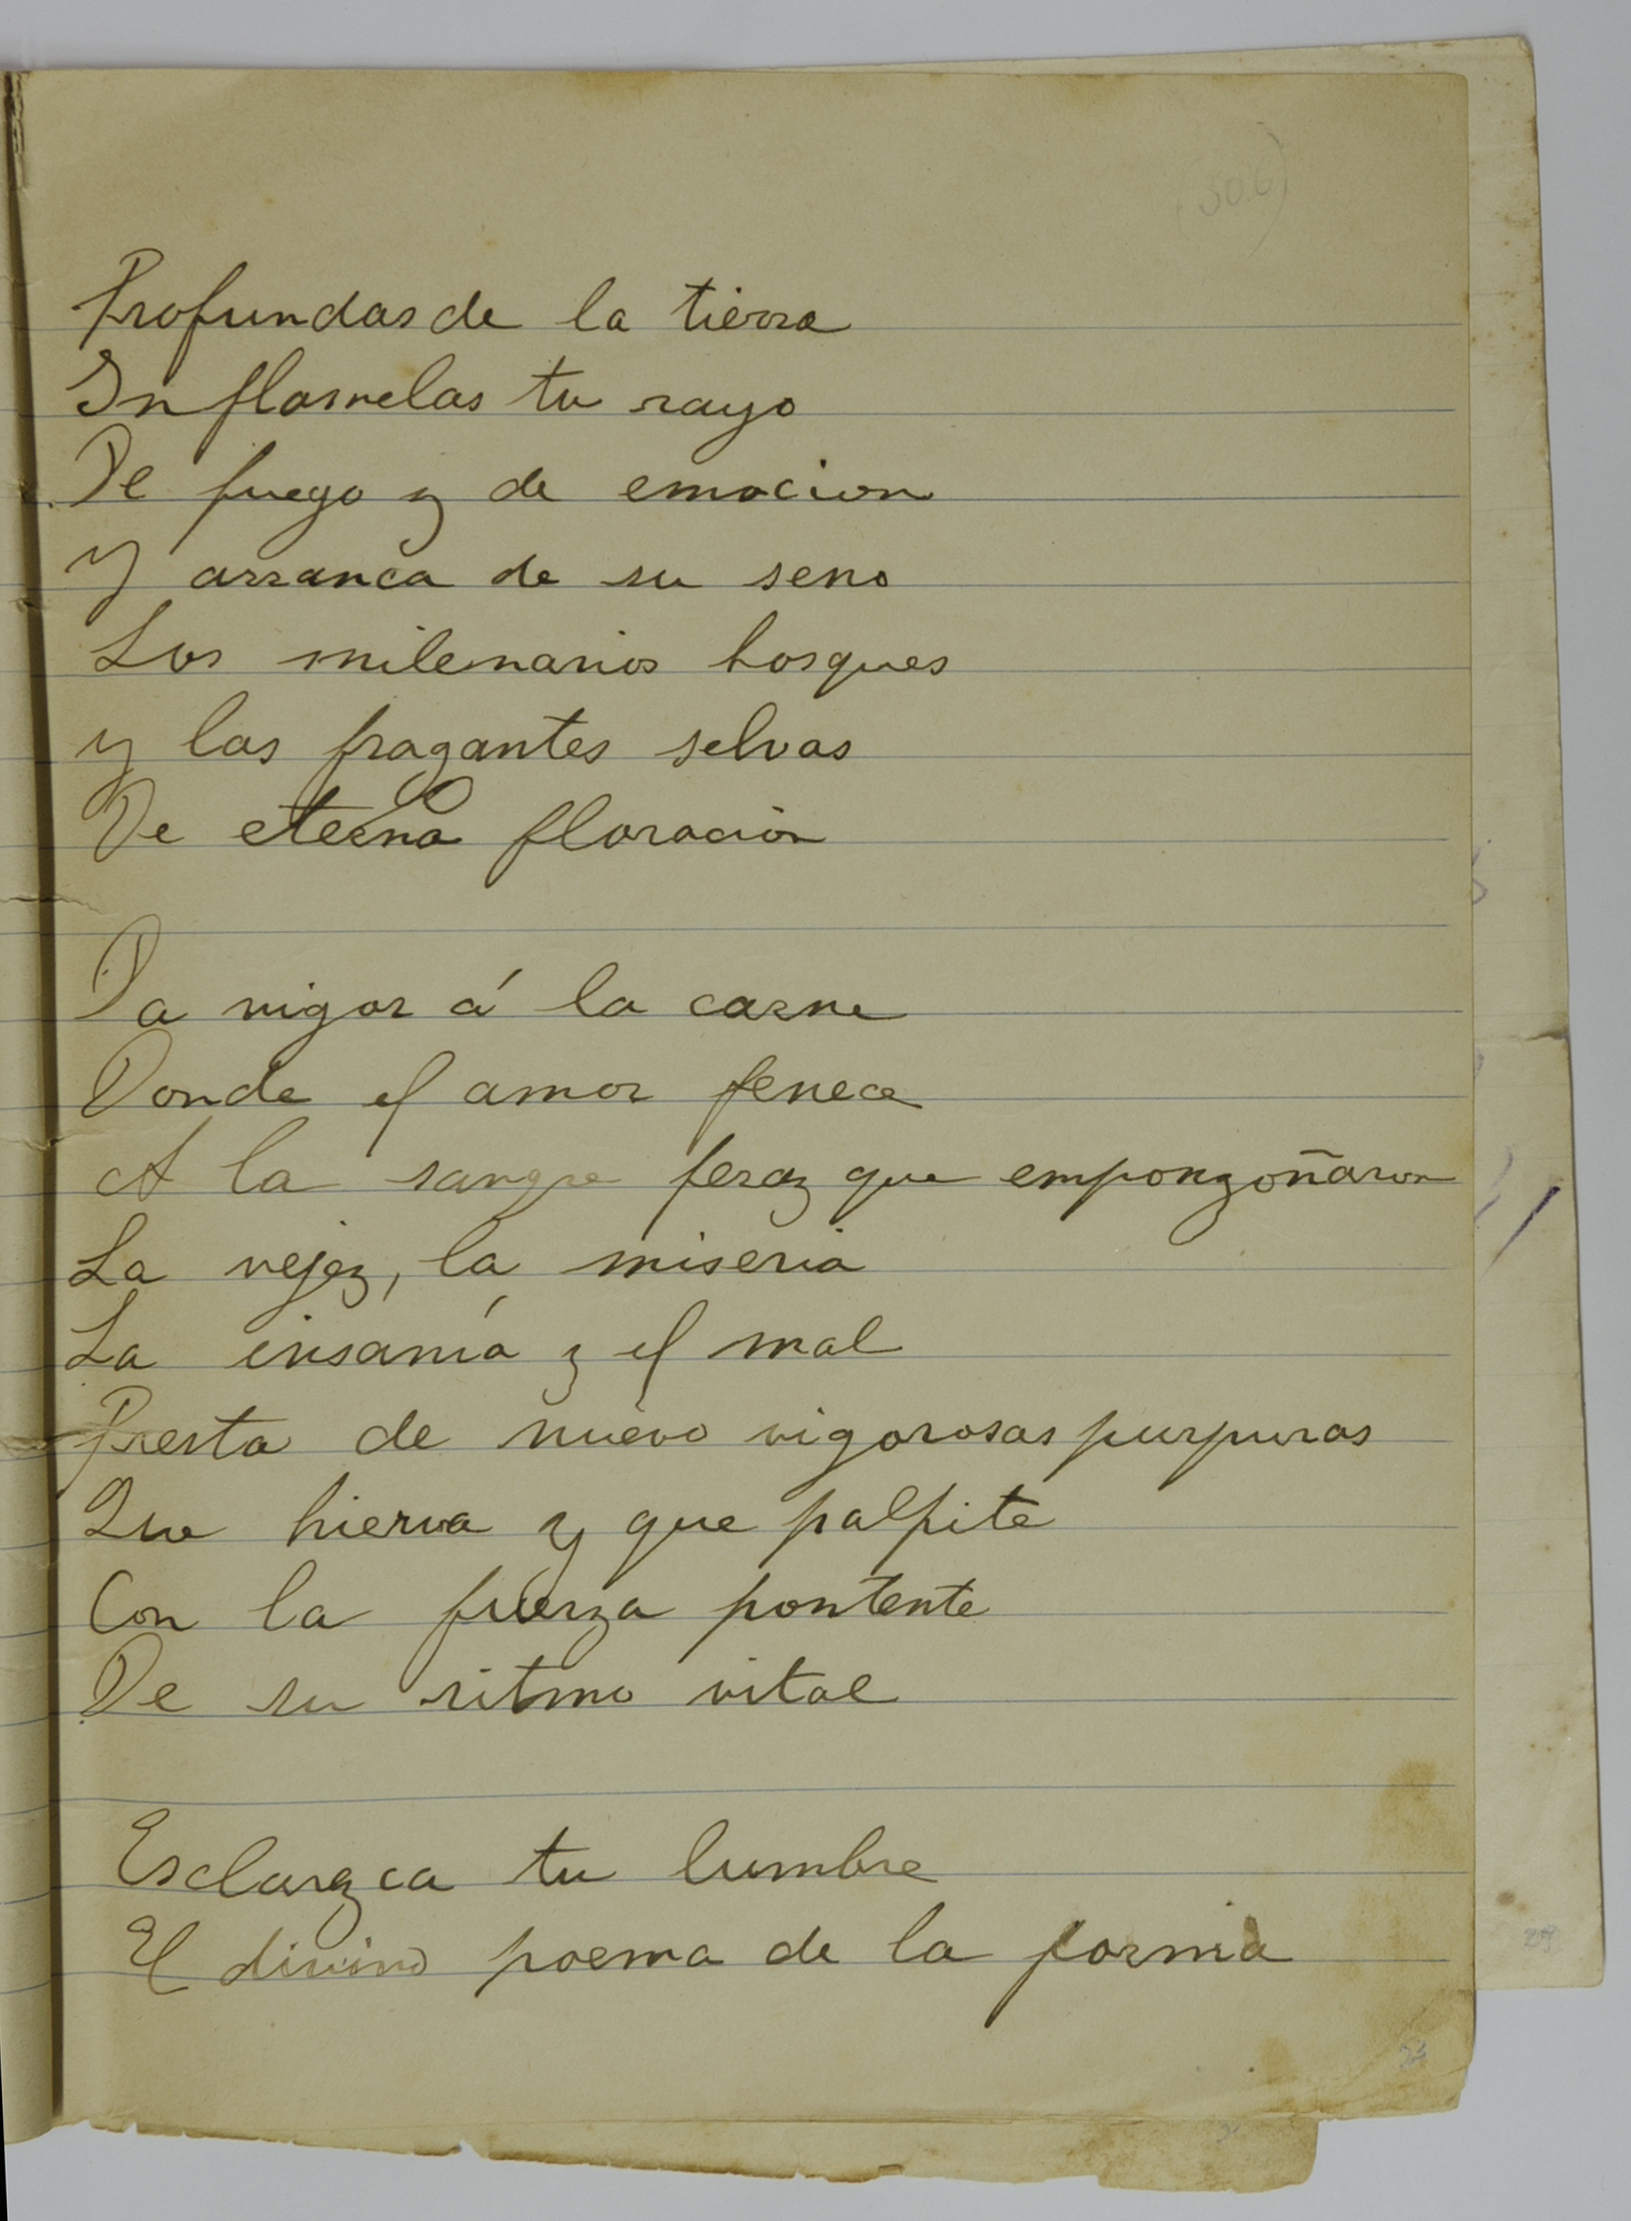 Profundas de la tierra
Inflamelas tu rayo
De fuego y de emocion
Y arranca de su seno
Los milenarios bosques
y las fragantes selvas
De eterna floracion
Da vigor á la carne
Donde el amor fenece
A la sangre feraz que emponzoñaron
La vejez, la miseria
La insanía y el mal
Presta de nuevo vigorosas purpuras
Que hierva y que palpite
Con la fuerza pontente
De su ritmo vital
Esclarezca tu lumbre
El divino poema de la forma